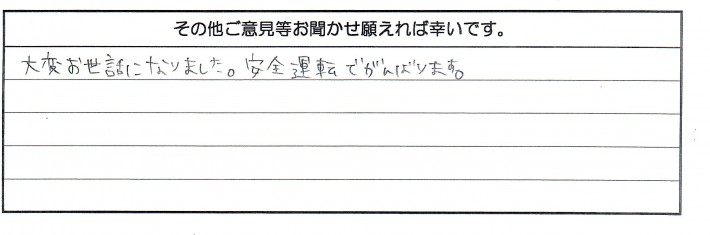 その他ご意見等お聞かせ願えれば幸いです。
大変お世話になりました。安全運転でがんばります。